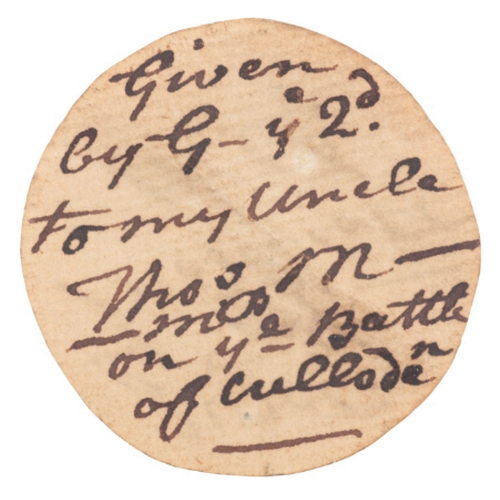 Given
by G- yᵉ 2ᵈ.
to my Uncle
Thos M—
—
on yᵉ Battle
of Cullodeⁿ